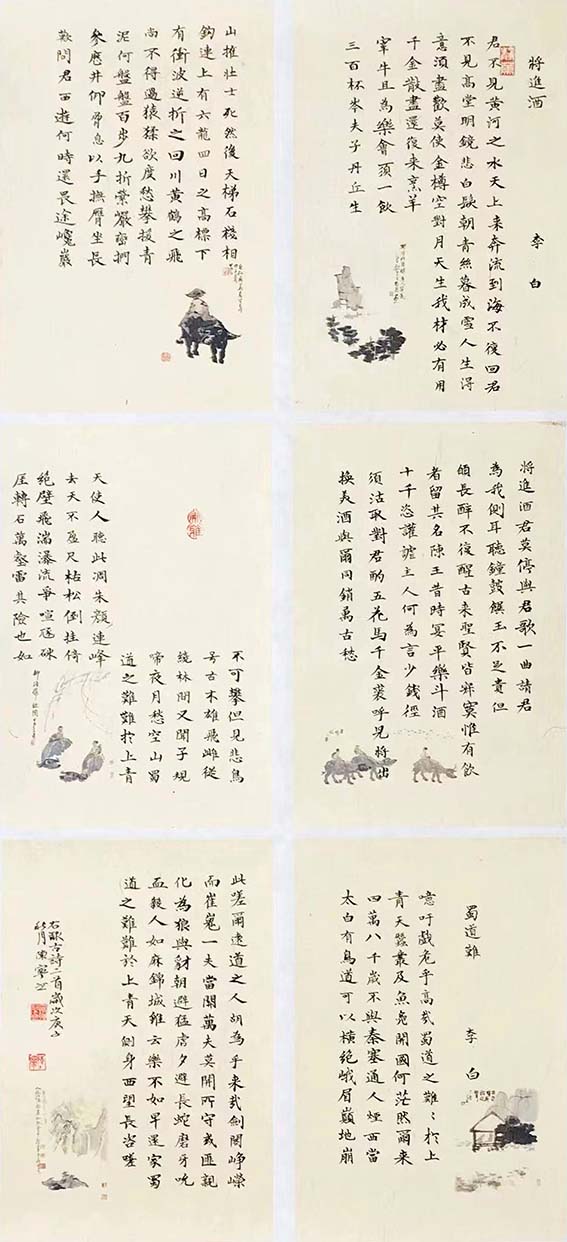 将進酒
李白
君不見黄河之水天上来奔流到海不復回君
不見高堂明鏡悲白髮朝青絲暮成雪人生得
意須盡歡莫使金樽空對月天生我材必有用
千金散盡還復来烹羊
宰牛且為樂會須一飲
三百杯岑夫子丹丘生
将進酒君莫停與君歌一曲請君
為我側耳聽鐘鼓饌玉不足貴但
願長醉不復醒古来聖賢皆寂寞惟有飲
者留其名陳王昔時宴平樂斗酒
十千恣讙謔主人何為言少錢徑
須沽取對君酌五花馬千金裘呼児将出
換美酒與爾同銷萬古愁
蜀道難
李白
噫吁戲危乎高哉蜀道之難〻於上
青天蠶叢及魚鳧開國何茫然爾来
四萬八千歲不與秦塞通人煙西當
太白有鳥道可以橫絕峨眉巔地崩
山摧壮士死然後天梯石棧相
鈎連上有六龍回日之高標下
有衝波逆折之回川黄鶴之飛
尚不得過猿猱欲度愁攀援青
泥何盤盤百步九折縈巖巒捫
參歷井仰脅息以手撫膺坐長
歎問君西遊何時還畏途巉巖
不可攀但見悲鳥
号古木雄飛雌從
繞林間又聞子規
啼夜月愁空山蜀
道之難難於上青
天使人聽此凋朱顏連峰
去天不盈尺枯松倒挂倚
絕壁飛湍瀑流爭喧豗砯
厓轉石萬壑雷其險也如
此嗟爾遠道之人胡為乎来哉劍閣崢嶸
而崔嵬一夫當關萬夫莫開所守或匪親
化為狼與豺朝避猛虎夕避長蛇磨牙吮
血殺人如麻錦城雖云樂不如早還家蜀
道之難難於上青天側身西望長咨嗟
右录古詩二首歲次庚子
秋月陳寧书